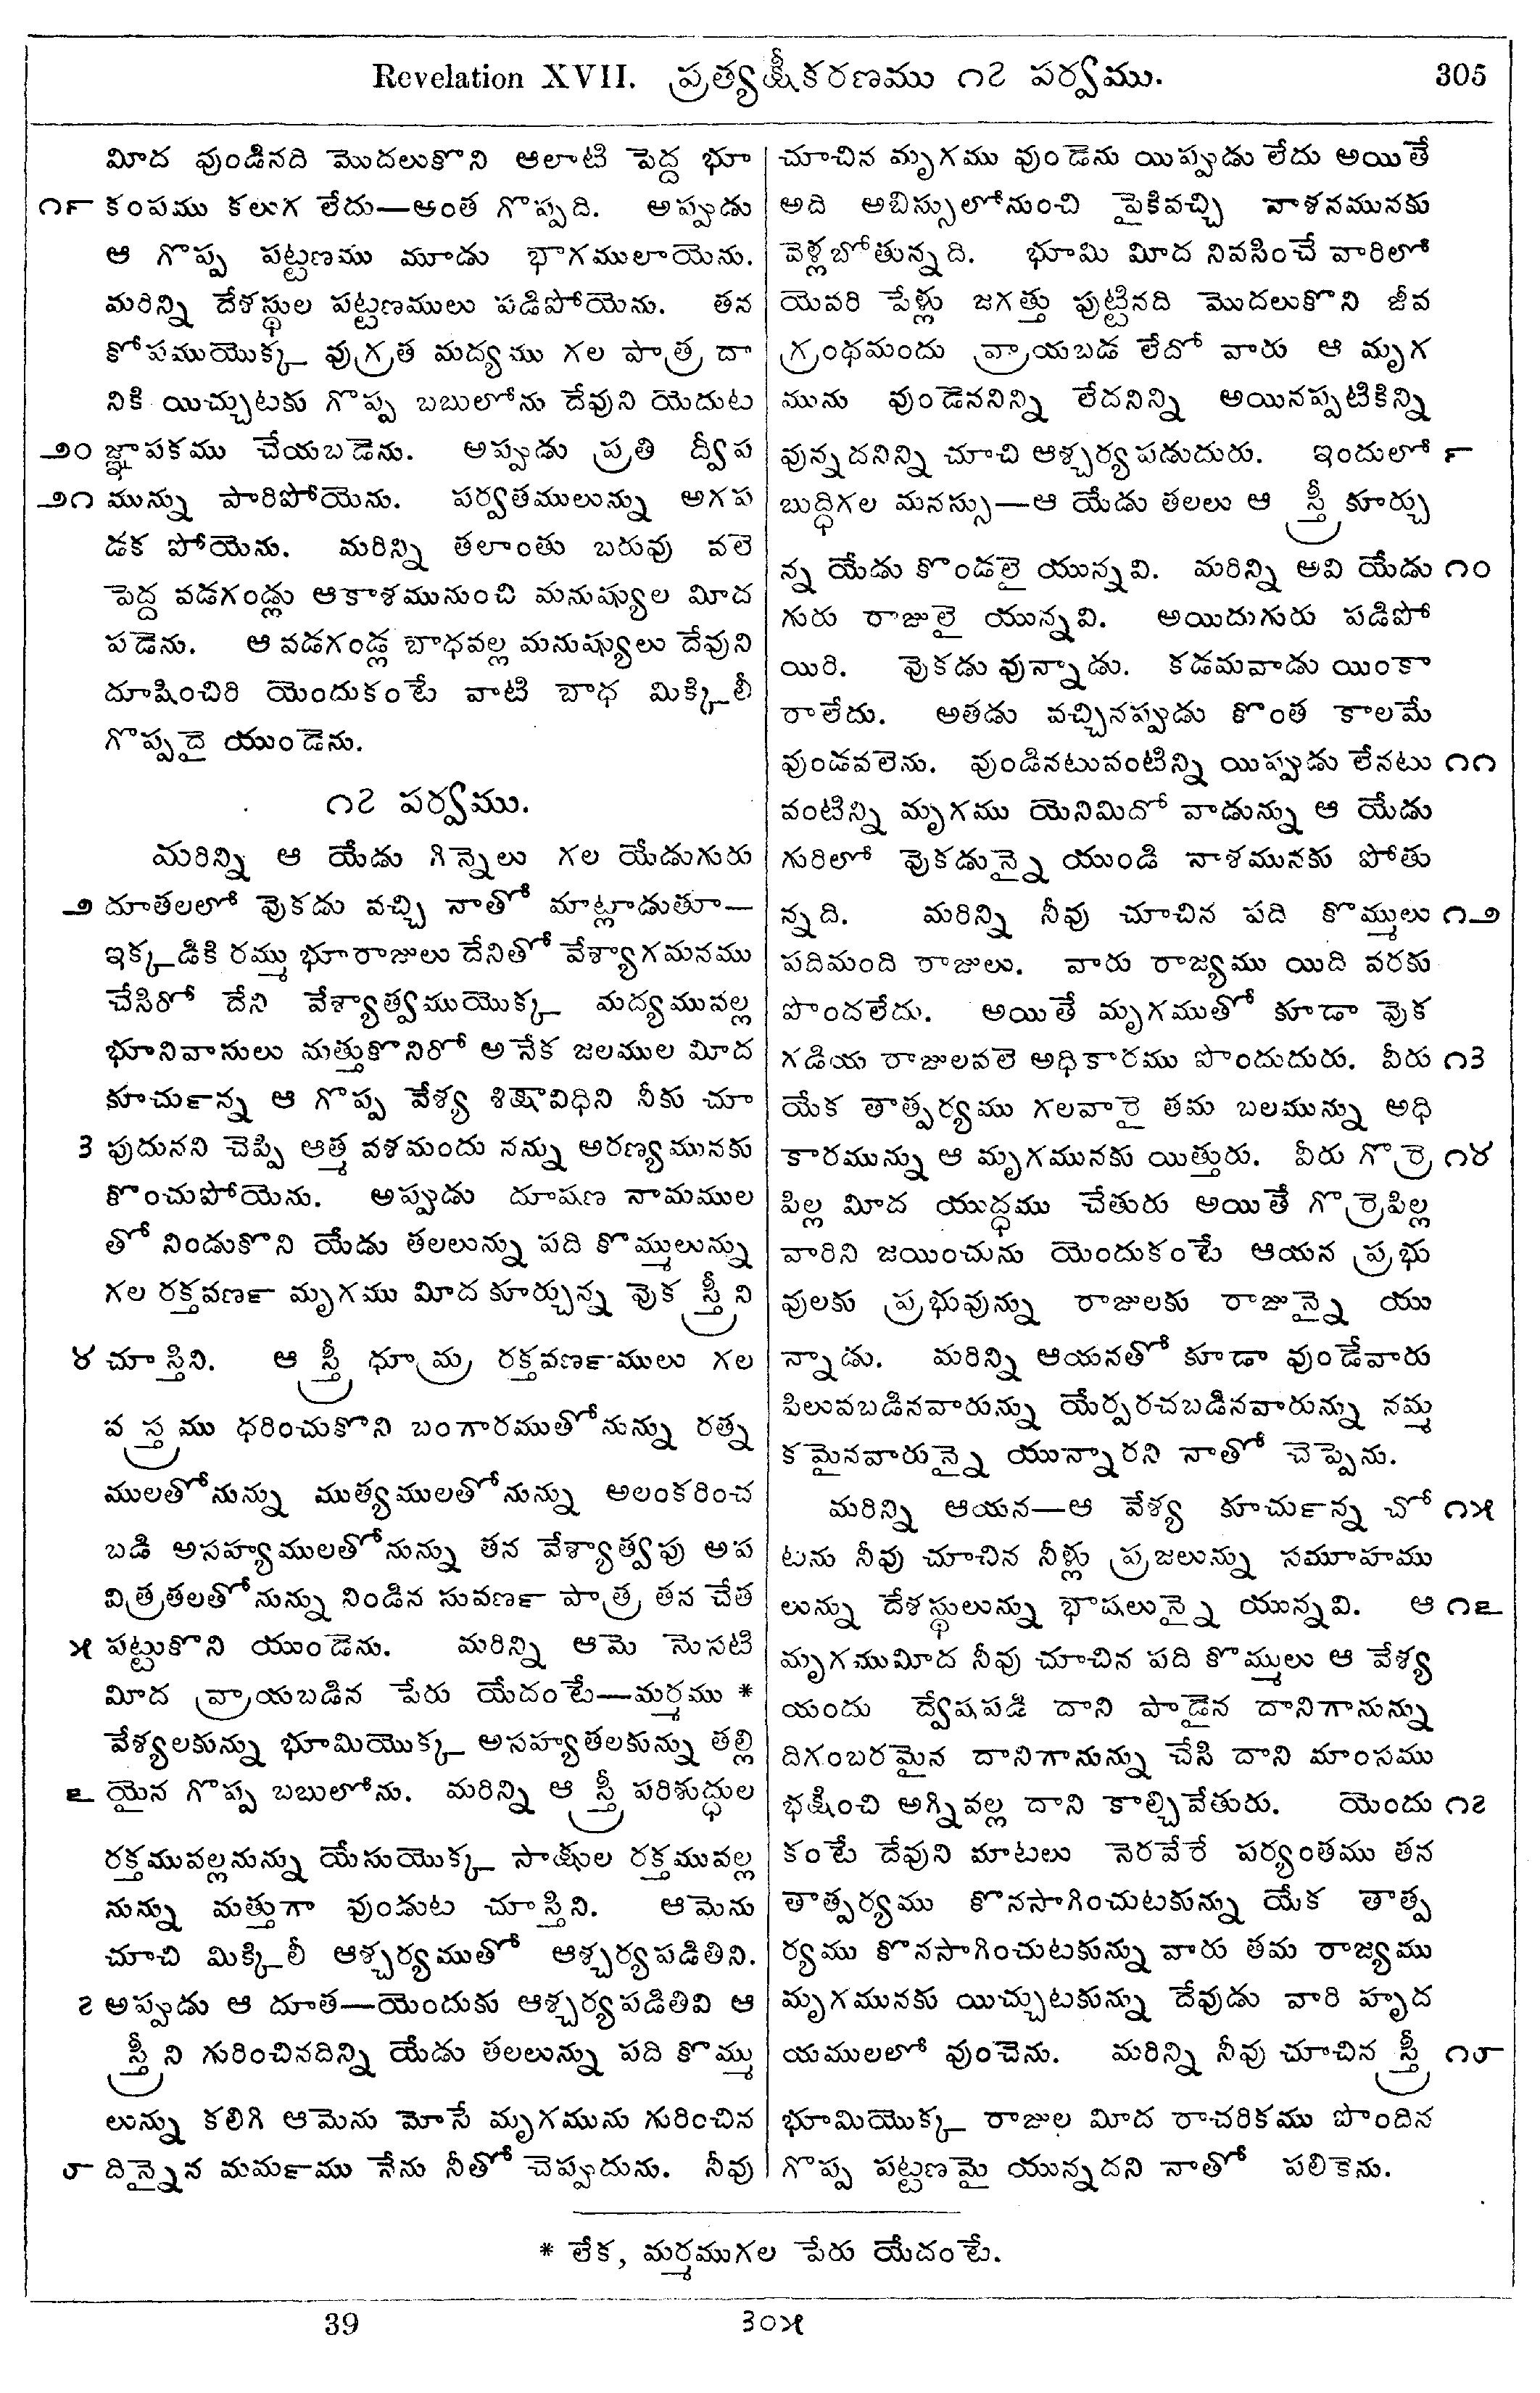 Revelation XVII. ప్రత్యక్షీకరణము ౧౭ పర్వము. 305
మీద వుండినది మొదలుకొని ఆలాటి పెద్ద భూ
౧౯ కంపము కలుగ లేదు—అంత గొప్పది. అప్పుడు
ఆ గొప్ప పట్టణము మూడు భాగములాయెను.
మరిన్ని దేశస్థుల పట్టణములు పడిపోయెను. తన
కోపముయొక్క వుగ్రత మద్యము గల పాత్ర దా
నికి యిచ్చుటకు గొప్ప బబులోను దేవుని యెదుట
౨౦ జ్ఞాపకము చేయబడెను. అప్పుడు ప్రతి ద్వీప
౨౧ మున్ను పారిపోయెను. పర్వతములున్ను అగప
డక పోయెను. మరిన్ని తలాంతు బరువు వలె
పెద్ద వడగండ్లు ఆకాశమునుంచి మనుష్యుల మీద
పడెను. ఆ వడగండ్ల బాధవల్ల మనుష్యులు దేవుని
దూషించిరి యెందుకంటే వాటి బాధ మిక్కిలీ
గొప్పదై యుండెను.
౧౭ పర్వము.
మరిన్ని ఆ యేడు గిన్నెలు గల యేడుగురు
౨ దూతలలో వుకడు వచ్చి నాతో మాట్లాడుతూ—
ఇక్కడికి రమ్ము భూరాజులు దేనితో వేశ్యాగమనము
చేసిరో దేని వేశ్యాత్వముయొక్క మద్యమువల్ల
భూనివాసులు మత్తుకొనిరో అనేక జలముల మీద
కూచుఁన్న ఆ గొప్ప వేశ్య శిక్షావిధిని నీకు చూ
౩ పుదునని చెప్పి ఆత్మ వశమందు నన్ను అరణ్యమునకు
కొంచుపోయెను. అప్పుడు దూషణ నామముల
తో నిండుకొని యేడు తలలున్ను పది కొమ్ములున్ను
గల రక్తవణఁ మృగము మీద కూర్చున్న వుక స్త్రీని
౪ చూస్తిని. ఆ స్త్రీ ధూమ్ర రక్తవణఁములు గల
వస్త్రము ధరించుకొని బంగారముతోనున్ను రత్న
ములతోనున్ను ముత్యములతోనున్ను అలంకరించ
బడి అసహ్యములతోనున్ను తన వేశ్యాత్వపు అప
విత్రతలతోనున్ను నిండిన సువణఁ పాత్ర తన చేత
౫ పట్టుకొని యుండెను. మరిన్ని ఆమె నెుసటి
మీద వ్రాయబడిన పేరు యేదంటే—మర్మము *
వేశ్యలకున్ను భూమియొక్క అసహ్యతలకున్ను తల్లి
౬ యైన గొప్ప బబులోను. మరిన్ని ఆ స్త్రీ పరిశుద్ధుల
రక్తమువల్లనున్ను యేసుయొక్క సాక్షుల రక్తమువల్ల
నున్ను మత్తుగా వుండుట చూస్తిని. ఆమెను
చూచి మిక్కిలీ ఆశ్చర్యముతో ఆశ్చర్యపడితిని.
౭ అప్పుడు ఆ దూత—యెందుకు ఆశ్చర్యపడితివి ఆ
స్త్రీని గురించినదిన్ని యేడు తలలున్ను పది కొమ్ము
లున్ను కలిగి ఆమెను మోసే మృగమును గురించిన
౮ దిన్నైన మమఁము నేను నీతో చెప్పుదును. నీవు
చూచిన మృగము వుండెను యిప్పుడు లేదు అయితే
అది అబిస్సులోనుంచి పైకివచ్చి వాశనమునకు
వెళ్లబోతున్నది. భూమి మీద నివసించే వారిలో
యెవరి పేళ్లు జగత్తు పుట్టినది మొదలుకొని జీవ
గ్రంథమందు వ్రాయబడ లేదో వారు ఆ మృగ
మును వుండెననిన్ని లేదనిన్ని అయినప్పటికిన్ని
వున్నదనిన్ని చూచి ఆశ్చర్యపడుదురు. ఇందులో ౯
బుద్ధిగల మనస్సు—ఆ యేడు తలలు ఆ స్త్రీ కూర్చు
న్న యేడు కొండలై యున్నవి. మరిన్ని అవి యేడు ౧౦
గురు రాజులై యున్నవి. అయిదుగురు పడిపో
యిరి. వుకడు వున్నాడు. కడమవాడు యింకా
రాలేదు. అతడు వచ్చినప్పుడు కొంత కాలమే
వుండవలెను. వుండినటువంటిన్ని యిప్పుడు లేనటు ౧౧
వంటిన్ని మృగము యెనిమిదో వాడున్ను ఆ యేడు
గురిలో వుకడున్నై యుండి నాశమునకు పోతు
న్నది. మరిన్ని నీవు చూచిన పది కొమ్ములు ౧౨
పదిమంది రాజులు. వారు రాజ్యము యిది వరకు
పొందలేదు. అయితే మృగముతో కూడా వుక
గడియ రాజులవలె అధికారము పొందుదురు. వీరు ౧౩
యేక తాత్పర్యము గలవారై తమ బలమున్ను అధి
కారమున్ను ఆ మృగమునకు యిత్తురు. వీరు గొర్రె ౧౪
పిల్ల మీద యుద్ధము చేతురు అయితే గొర్రెపిల్ల
వారిని జయించును యెందుకంటే ఆయన ప్రభు
వులకు ప్రభువున్ను రాజులకు రాజున్నై యు
న్నాడు. మరిన్ని ఆయనతో కూడా వుండేవారు
పిలువబడినవారున్ను యేర్పరచబడినవారున్ను నమ్మ
కమైనవారున్నై యున్నారని నాతో చెప్పెను.
మరిన్ని ఆయన—ఆ వేశ్య కూచుఁన్న చో ౧౫
టను నీవు చూచిన నీళ్లు ప్రజలున్ను సమూహము
లున్ను దేశస్థులున్ను భాషలున్నై యున్నవి. ఆ ౧౬
మృగముమీద నీవు చూచిన పది కొమ్ములు ఆ వేశ్య
యందు ద్వేషపడి దాని పాడైన దానిగానున్ను
దిగంబరమైన దానిగానున్ను చేసి దాని మాంసము
భక్షించి అగ్నివల్ల దాని కాల్చివేతురు. యెందు ౧౭
కంటే దేవుని మాటలు నెరవేరే పర్యంతము తన
తాత్పర్యము కొనసాగించుటకున్ను యేక తాత్ప
ర్యము కొనసాగించుటకున్ను వారు తమ రాజ్యము
మృగమునకు యిచ్చుటకున్ను దేవుడు వారి హృద
యములలో వుంచెను. మరిన్ని నీవు చూచిన స్త్రీ ౧౮
భూమియొక్క రాజుల మీద రాచరికము పొందిన
గొప్ప పట్టణమై యున్నదని నాతో పలికెను.
* లేక, మర్మముగల పేరు యేదంటే.
39 ౩౦౫